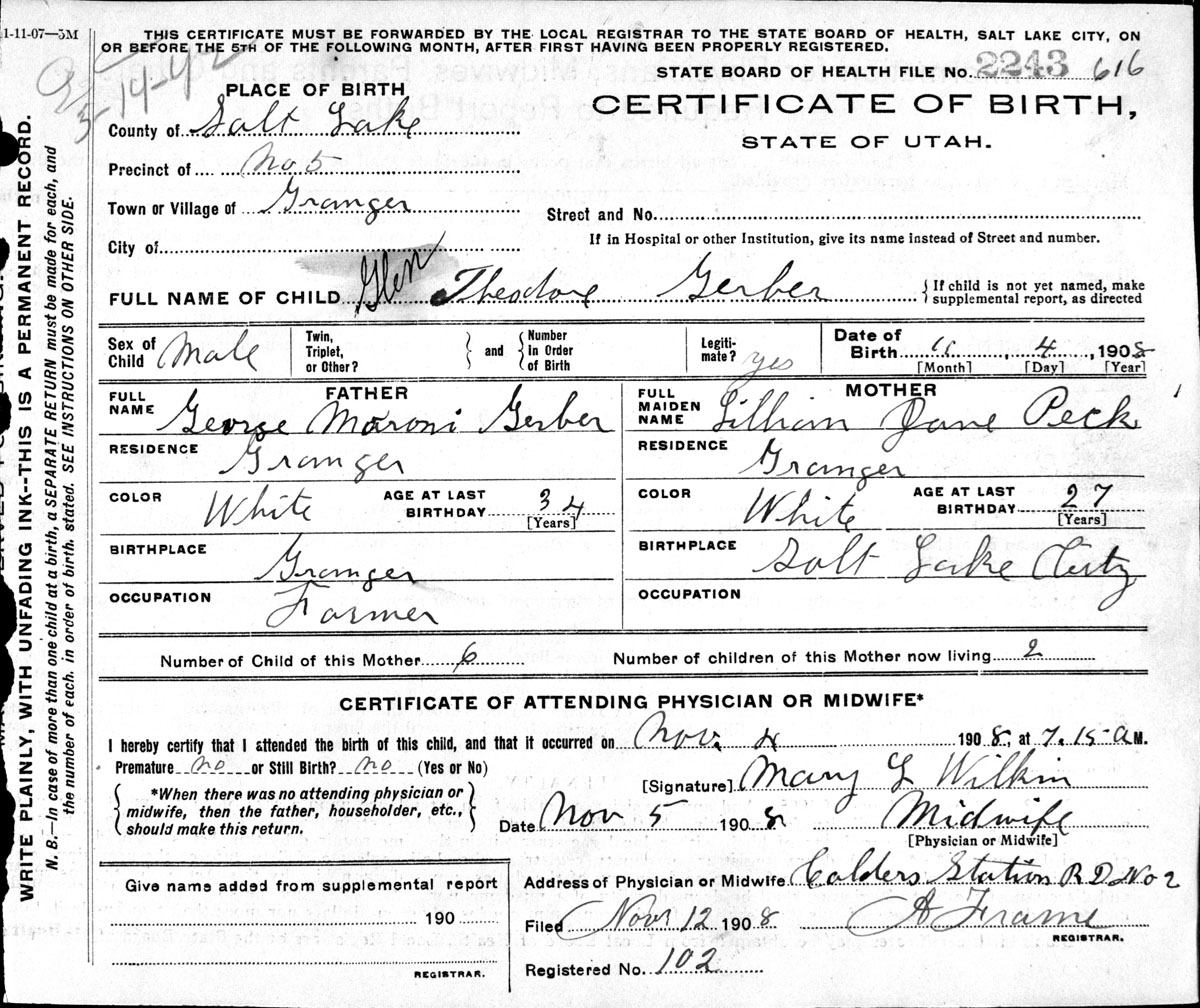 1-11-07—5M
THIS CERTIFICATE MUST BE FORWARDED BY THE LOCAL REGISTRAR TO THE STATE BOARD OF HEALTH, SALT LAKE CITY, ON
OR BEFORE THE 5TH OF THE FOLLOWING MONTH, AFTER FIRST HAVING BEEN PROPERLY REGISTERED.
STATE BOARD OF HEALTH FILE No. 2243 616
5-14-42
PLACE OF BIRTH
CERTIFICATE OF BIRTH,
STATE OF UTAH.
County of Salt Lake
Precinct of No 5
Town or Village of Granger
Street and No.
City of
If in Hospital or other Institution, give its name instead of Street and number.
FULL NAME OF CHILD Glen Theodore Gerber { If child is not yet named, make supplemental report, as directed
Sex of Child Male
Twin, Triplet, or Other? } and { Number In Order of Birth
Legiti-mate? yes
Date of Birth 11, 4, 1908
[Month] [Day] [Year]
FATHER
FULL NAME George Maroni Gerber
MOTHER
FULL MAIDEN NAME Lillian Jane Peck
RESIDENCE Granger
RESIDENCE Granger
COLOR White AGE AT LAST BIRTHDAY 34 [Years]
COLOR White AGE AT LAST BIRTHDAY 27 [Years]
BIRTHPLACE Granger
BIRTHPLACE Salt Lake City
OCCUPATION Farmer
OCCUPATION
Number of Child of this Mother 6 Number of children of this Mother now living 2
CERTIFICATE OF ATTENDING PHYSICIAN OR MIDWIFE*
I hereby certify that I attended the birth of this child, and that it occurred on Nov. 4 1908, at 7.15 A M.
Premature no or Still Birth? no (Yes or No)
[Signature] Mary L Wilkin
{ *When there was no attending physician or midwife, then the father, householder, etc., should make this return. }
Date Nov 5 1908 Midwife
[Physician or Midwife]
Give name added from supplemental report
Address of Physician or Midwife Calders Station R D No 2
190
Filed Nov 12 1908 A Frame
REGISTRAR.
REGISTRAR.
Registered No. 102
WRITE PLAINLY, WITH UNFADING INK--THIS IS A PERMANENT RECORD.
N. B.—In case of more than one child at a birth, a SEPARATE RETURN must be made for each, and
the number of each, in order of birth, stated. SEE INSTRUCTIONS ON OTHER SIDE.